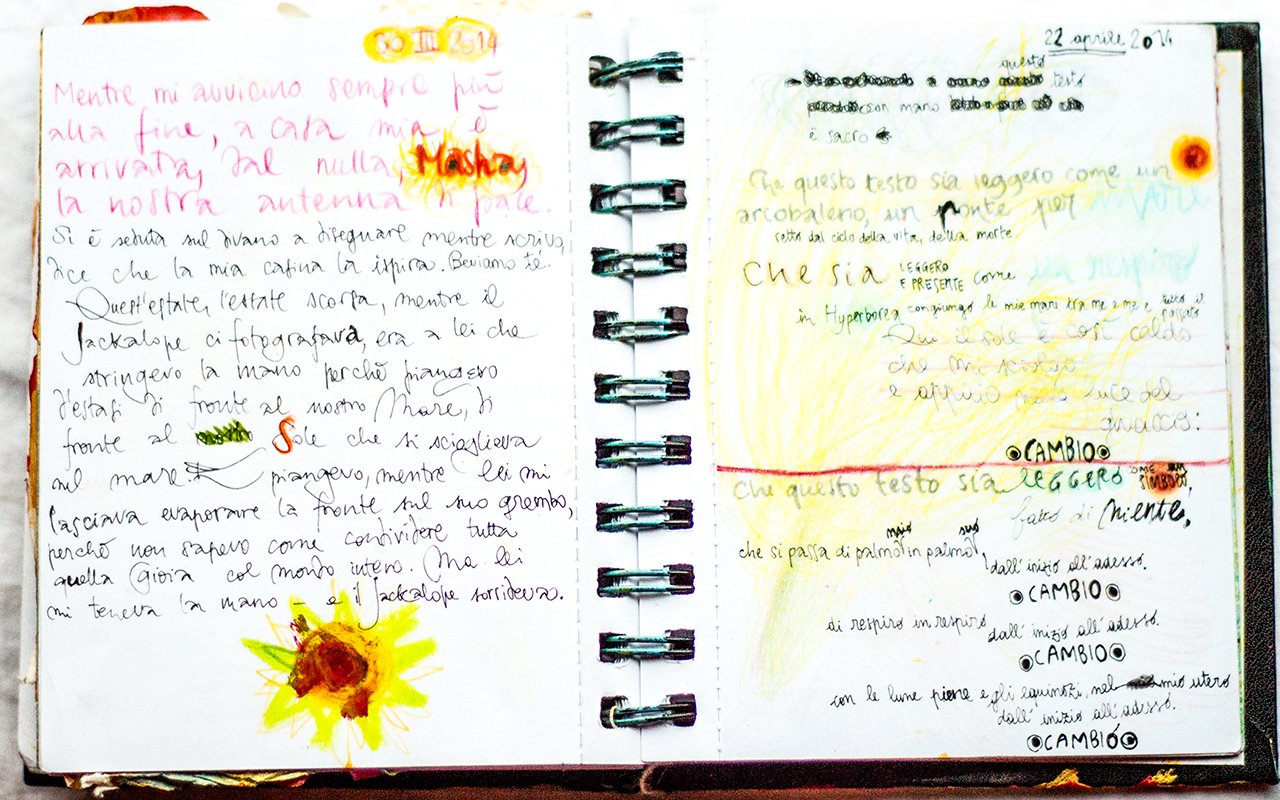 30 III 2014
Mentre mi avvicino sempre più
alla fine, a casa mia è
arrivata, dal nulla, Masha,
la nostra antenna d pace.
Si è seduta sul divano a disegnare mentre scrivo,
dice che la mia casina la ispira. Beviamo tè.
Quest'estate, l'estate scorsa, mentre il
Jackalope ci fotografava, era a lei che
stringevo la mano perchè piangevo
d'estasi di fronte al nostro Mare, di
fronte al Sole che si scioglieva
sul mare. piangevo, mentre lei mi
lasciava evaporare la fronte sul suo grembo,
perchè non sapevo come condividere tutta
quella Gioia col mondo intero. Ma lei
mi teneva la mano – e il Jackalope sorrideva.
22 aprile 2014
questo
testo
con mano
è sacro
Che questo testo sia leggero come un
arcobaleno, un ponte per
retto dal ciclo della vita, della morte.
Che sia LEGGERO E PRESENTE come
in Hyperborea congiungo le mie mani tra me e me e tutto il passato
Qui il sole è così caldo
che mi sciolgo
e luce del
ghiaccio:
CAMBIO
Che questo testo sia LEGGERO COME UN SIMBOLO,
fatto di Niente,
mio suo
che si passa di palmo in palmo,
dall'inizio all'adesso.
CAMBIO
di respiro in respiro
dall'inizio all'adesso.
CAMBIO
con le lune piene e gli equinozi, nel mio utero
dall'inizio all'adesso.
CAMBIO